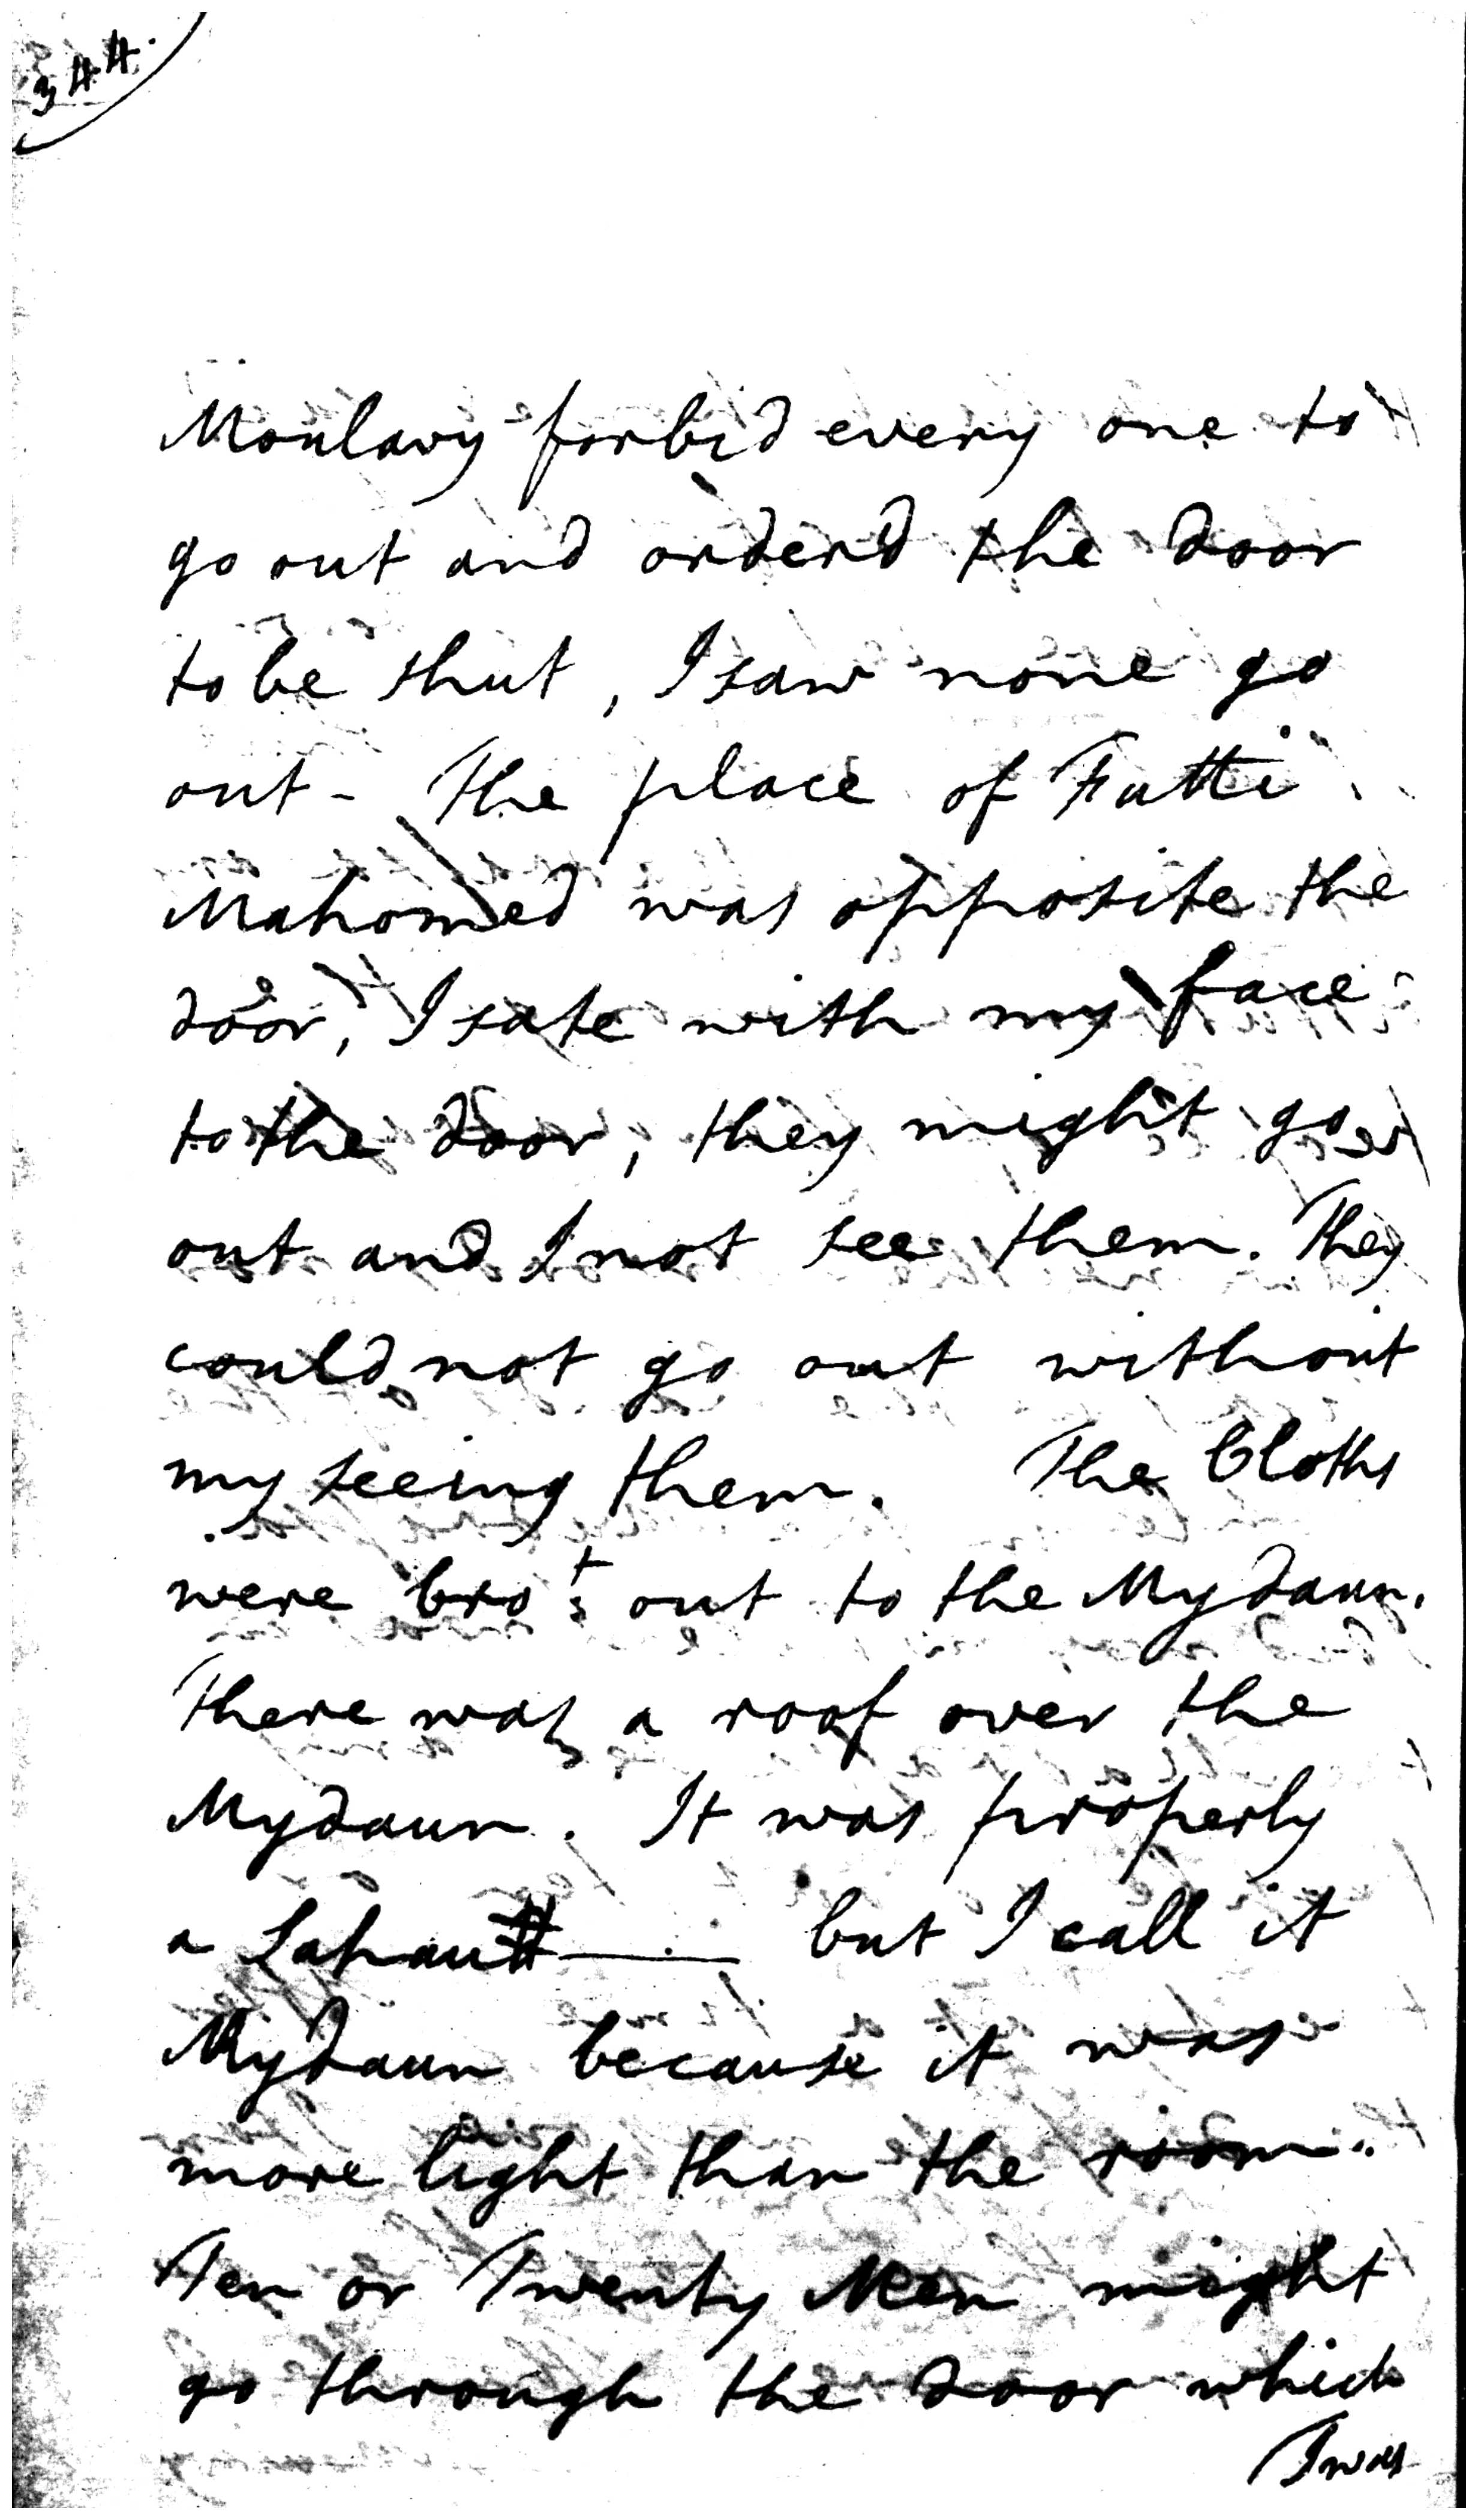 344.
Moulavy forbid every one to
go out and orderd the door
to be shut, I saw none go
out - The place of Futti
Mahomed was opposite the
door, I sate with my face
to the door, they might go
out and I not see them. They
could not go out without
my seeing them. The Cloths
were bro.t out to the Mydaun.
There was a roof over the
Mydaun. It was properly
a but I call it
Mydaun because it was
more light than the room.
Ten or Twenty Men might
go through the door which
I was